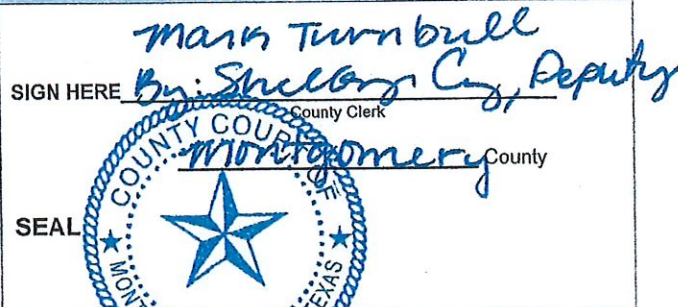 Mark Turnbull
SIGN HERE By: , Deputy
County Clerk
Montgomery County
SEAL
COUNTY COURT OF
MONT TEXAS